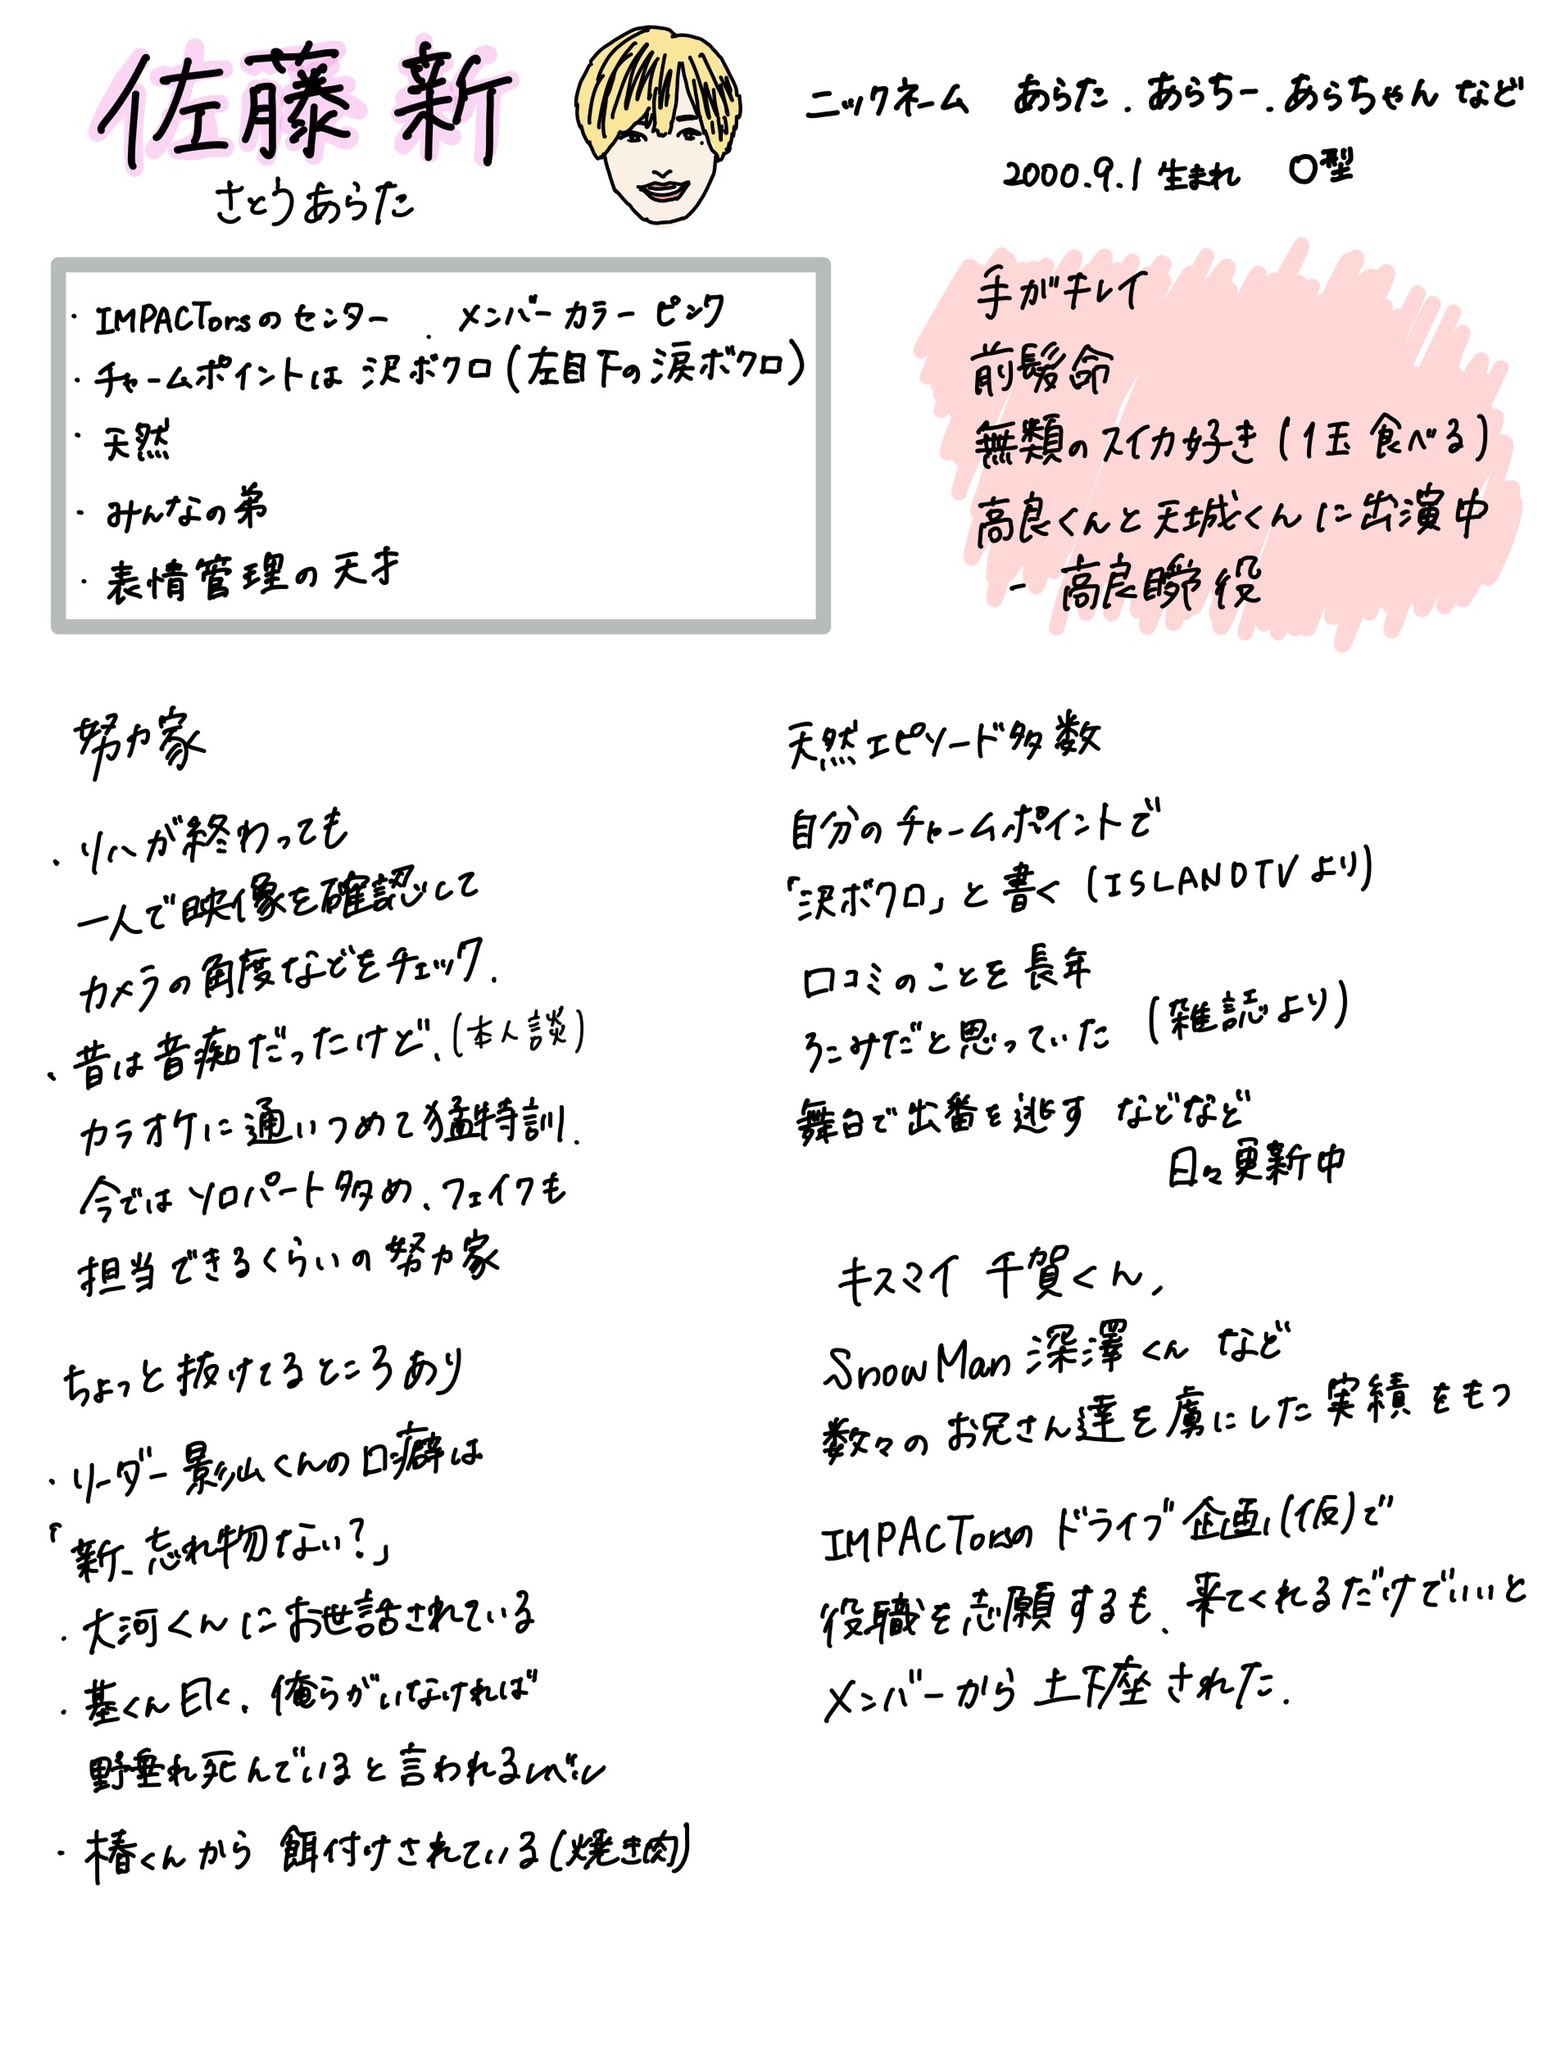 佐藤 新
さとうあらた
ニックネーム あらた、あらちー、あらちゃん など
2000.9.1 生まれ O型
・IMPACTorsのセンター ・メンバーカラー ピンク
・チャームポイントは 沢ボクロ(左目下の涙ボクロ)
・天然
・みんなの弟
・表情管理の天才
手がキレイ
前髪命
無類のスイカ好き(1玉 食べる)
高良くんと天城くんに出演中
- 高良瞬役
努力家
・リハが終わっても
一人で映像を確認して
カメラの角度などをチェック.
・昔は音痴だったけど、(本人談)
カラオケに通いつめて猛特訓.
今ではソロパート多め、フェイクも
担当できるくらいの努力家
ちょっと抜けてるところあり
・リーダー影山くんの口癖は
「新、忘れ物ない?」
・大河くんにお世話されている
・基くん曰く、俺らがいなければ
野垂れ死んでいると言われるレベル
・椿くんから 餌付けされている(焼き肉)
天然エピソード多数
自分のチャームポイントで
「沢ボクロ」と書く(ISLANDTVより)
口コミのことを長年
ろこみだと思っていた (雑誌より)
舞台で出番を逃す などなど
日々更新中
キスマイ 千賀くん、
SnowMan 深澤くん など
数々のお兄さん達を虜にした実績をもつ
IMPACTorsの ドライブ企画(仮)で
役職を志願するも、来てくれるだけでいいと
メンバーから土下座された.